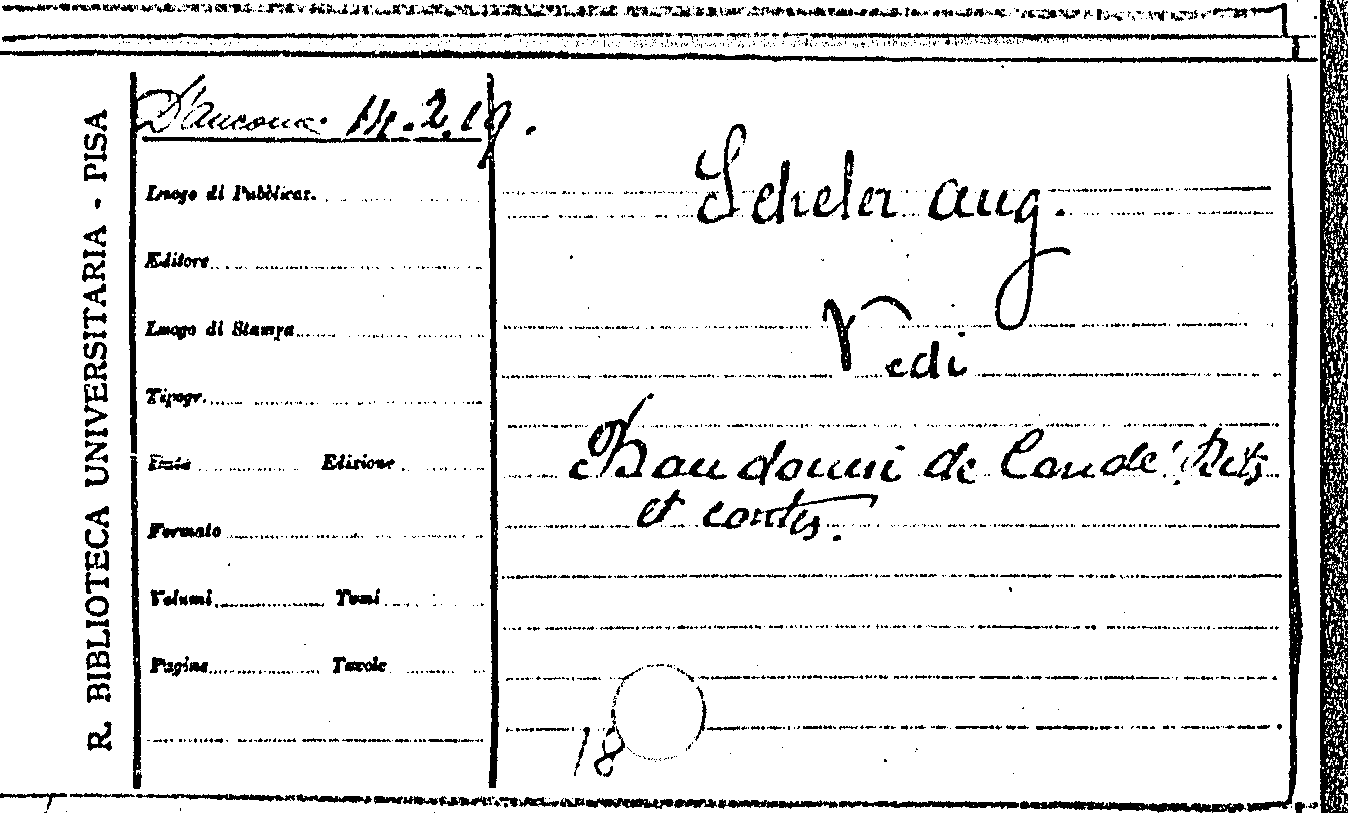 R. BIBLIOTECA UNIVERSITARIA - PISA
D'Ancona 14.2.19.
Luogo di Pubblicaz.
Editore
Luogo di Stampa
Tipogr.
Data Edizione
Formato
Volumi Tomi
Pagine Tavole
Scheler Aug.
Vedi
Baudouin de Condé: Dits
et contes.
18